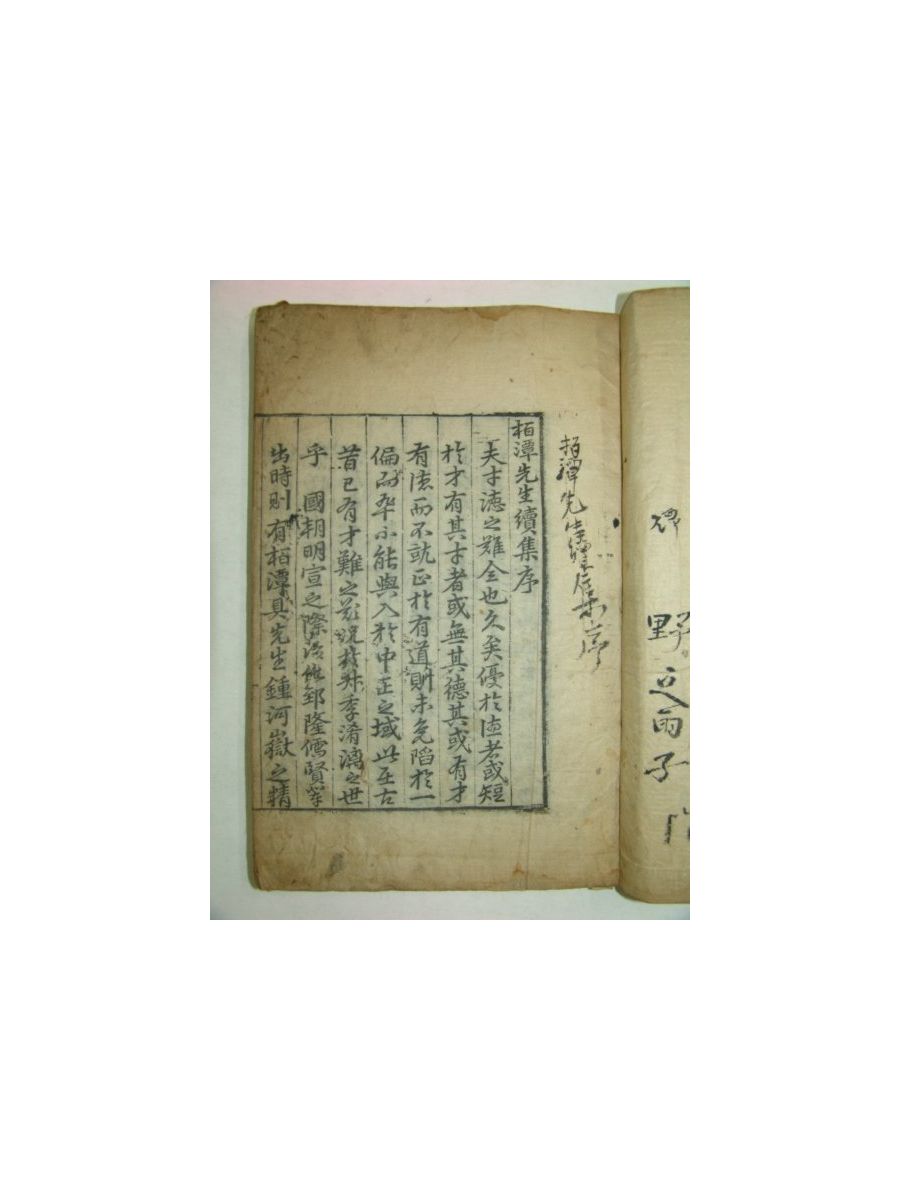 栢潭先生續集序
夫才德之難全也久矣優於德者或短
於才有其才者或無其德其或有才
有德而不就正於有道則未免陷於一
偏而卒不能與入於中正之域此在古
昔已有才難之歎況於叔季淆漓之世
乎 國朝明宣之際治化郅隆儒賢輩
出時則有栢潭具先生鍾河嶽之精
栢潭先生 序
野 雨子